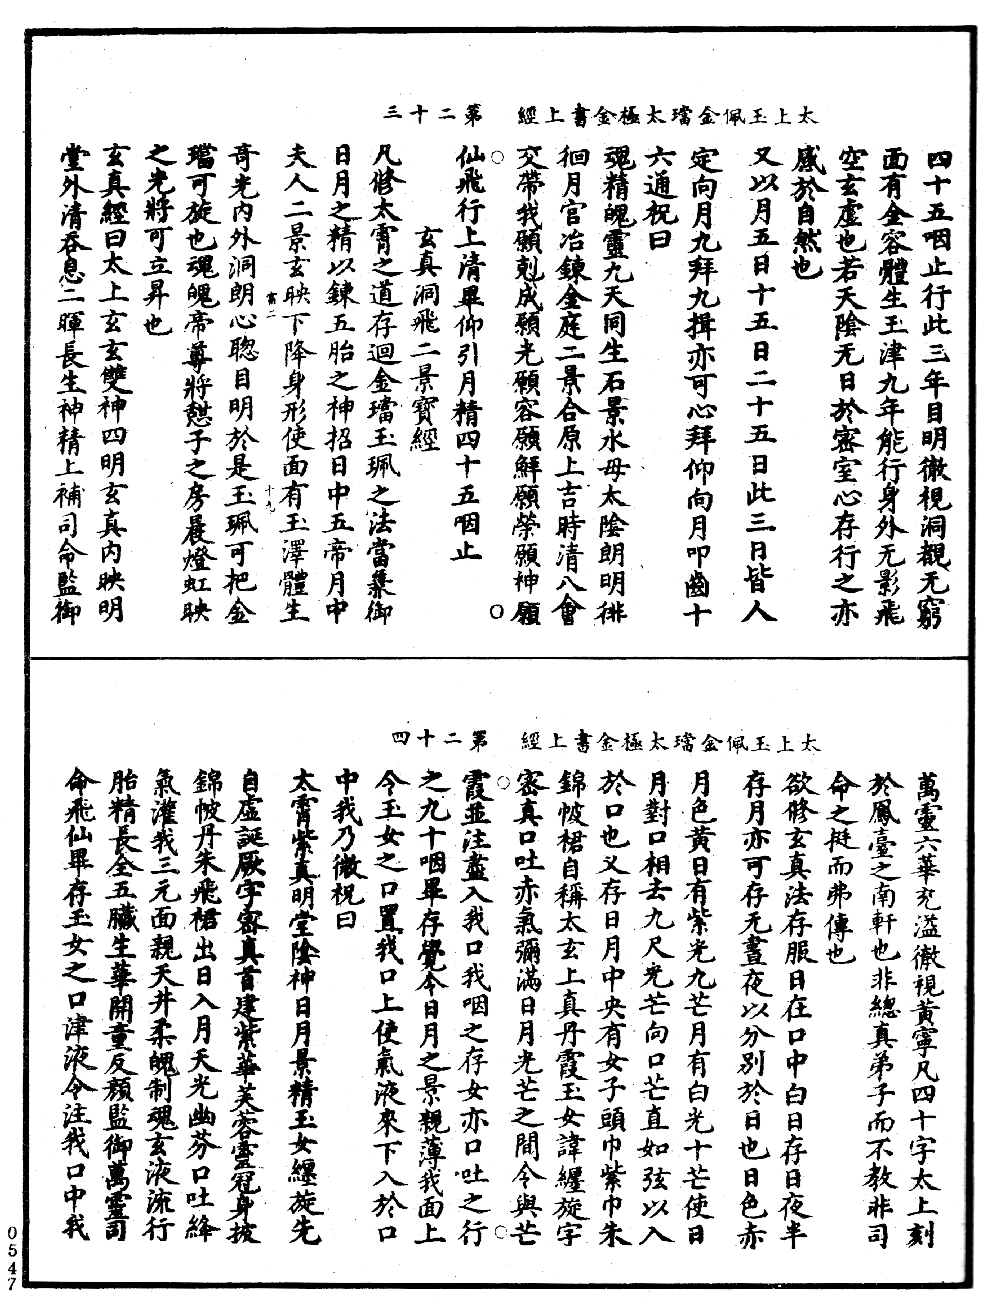 太上玉佩金璫太極金書上經　第二十三
四十五咽止行此三年目明徹視洞觀无窮
面有金容體生玉津九年能行身外无影飛
空玄虛也若天陰无日於密室心存行之亦
感於自然也
又以月五日十五日二十五日此三日皆人
定向月九拜九揖亦可心拜仰向月叩齒十
六通祝曰
魂精魄靈九天同生石景水母太陰朗明徘
徊月宫冶鍊金庭二景合原上吉時清八會
交帶我願剋成願光願容願鮮願榮願神願
仙飛行上清畢仰引月精四十五咽止
玄真洞飛二景寶經
凡修太霄之道存迴金璫玉珮之法當兼御
日月之精以鍊五胎之神招日中五帝月中
夫人二景玄映下降身形使面有玉澤體生
玄二
十九
奇光内外洞朗心聦目明於是玉珮可把金
璫可旋也魂魄帝尊將憇子之房晨燈虹映
之光將可立昇也
玄真經曰太上玄玄雙神四明玄真内映明
堂外清吞息二暉長生神精上補司命監御
太上玉佩金璫太極金書上經　第二十四
萬靈六華充溢徹視黄寧凡四十字太上刻
於鳳臺之南軒也非總真弟子而不教非司
命之挺而弗傳也
欲修玄真法存服日在口中白日存日夜半
存月亦可存无晝夜以分别於日也日色赤
月色黄日有紫光九芒月有白光十芒使日
月對口相去九尺光芒向口芒直如弦以入
於口也又存日月中央有女子頭巾紫巾朱
錦帔裙自稱太玄上真丹霞玉女諱纏旋字
密真口吐赤氣彌滿日月光芒之間令與芒
霞並注盡入我口我咽之存女亦口吐之行
之九十咽畢存覺令日月之景親薄我面上
令玉女之口置我口上使氣液來下入於口
中我乃微祝曰
太霄紫真明堂陰神日月景精玉女纏旋先
自虛誕厥字密真首建紫華芙蓉靈冠身披
錦帔丹朱飛裙出日入月天光幽芬口吐絳
氣灌我三元面親天井柔魄制魂玄液流行
胎精長全五臟生華開童反顏監御萬靈司
命飛仙畢存玉女之口津液令注我口中我
0547